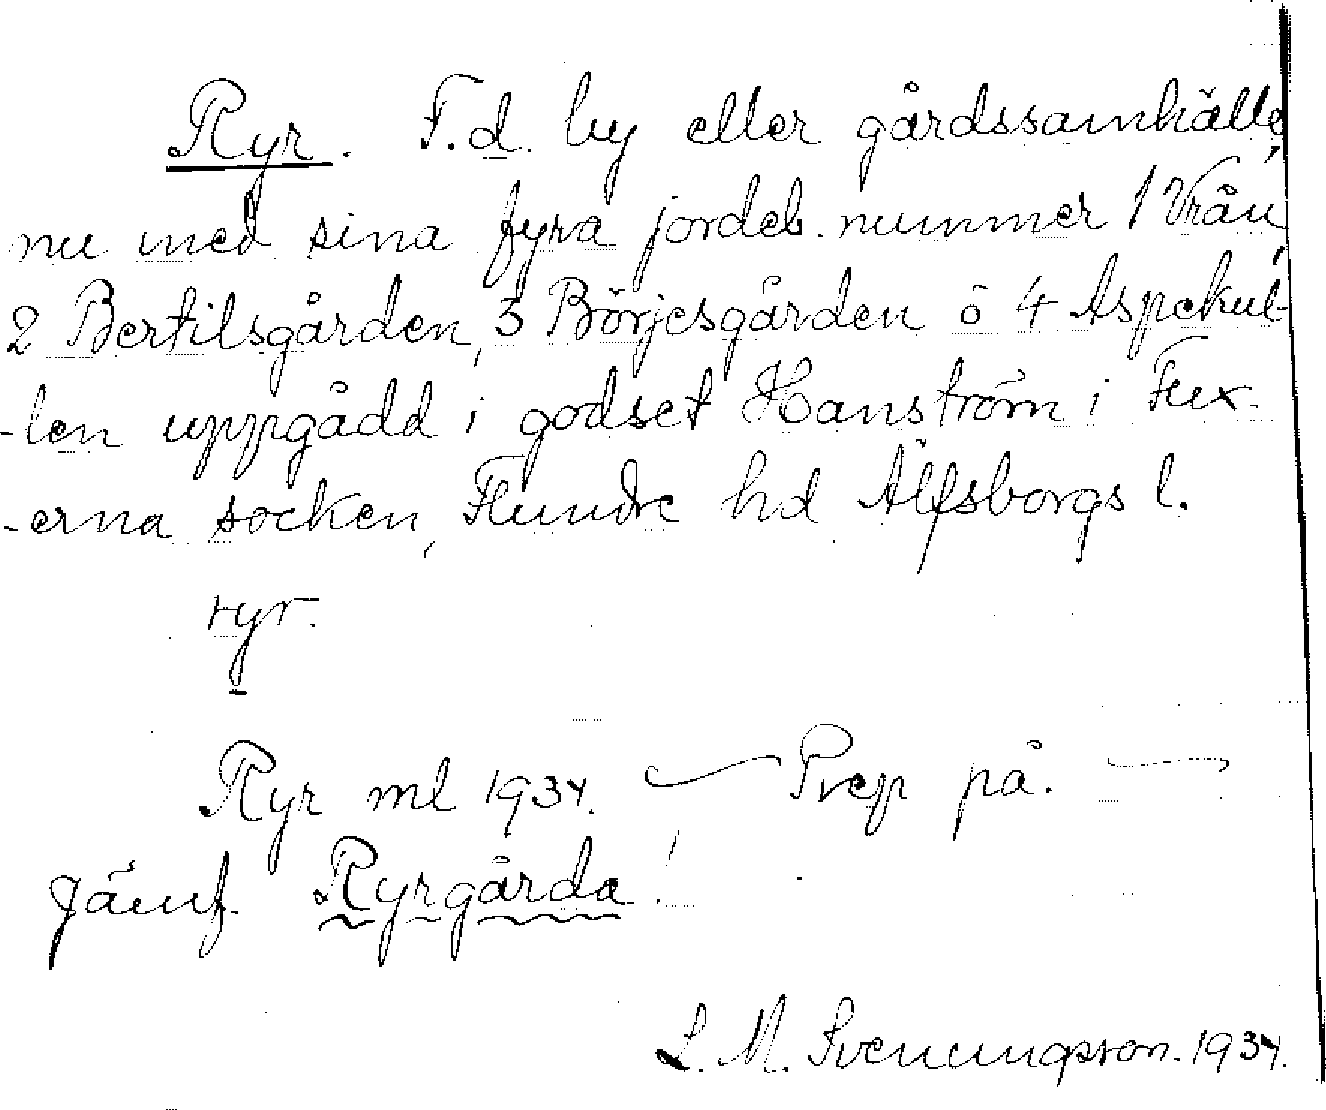 Ryr. F.d. by eller gårdssamhälle,
nu med sina fyra jordeb. nummer 1 Vrån,
2 Bertilsgården, 3 Börjesgården o 4 Aspekul-
-len uppgådd i godset Hanström i Fux-
-erna socken, Flundre hd Älfsborgs l.
ryr.
Ryr ml 1934. — Prep på. —
Jämf. Ryrgårda!
L. M. Svenungsson. 1934.